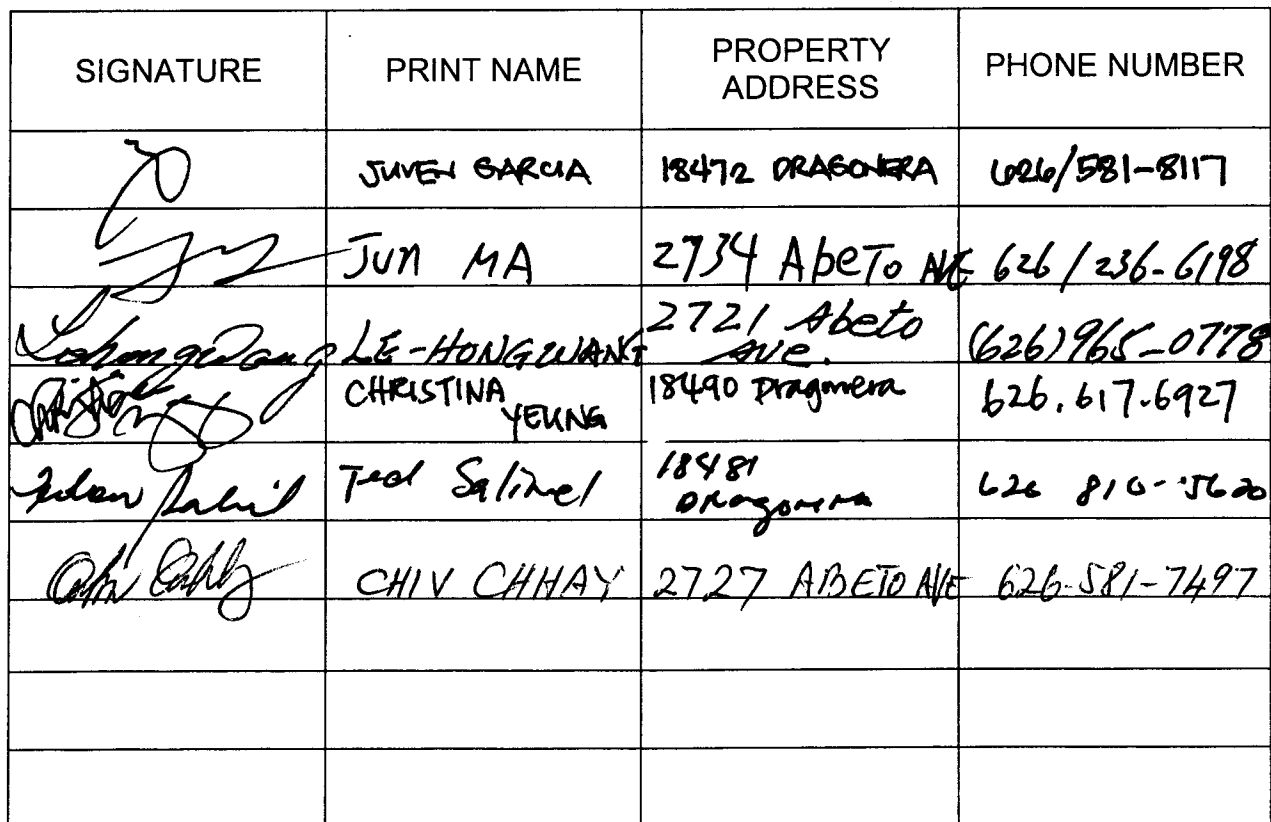 SIGNATURE PRINT NAME PROPERTY ADDRESS PHONE NUMBER
JUVEN GARCIA 18472 DRAGONERA 626/581-8117
JUN MA 2734 Abeto AVE 626/236-6198
Lehongwang LE-HONGWANG 2721 Abeto Ave. (626)965-0778
CHRISTINA YEUNG 18490 Dragonera 626.617.6927
Ted Salinel 18481 Dragonera 626 810-5620
CHIV CHHAY 2727 ABETO AVE 626-581-7497